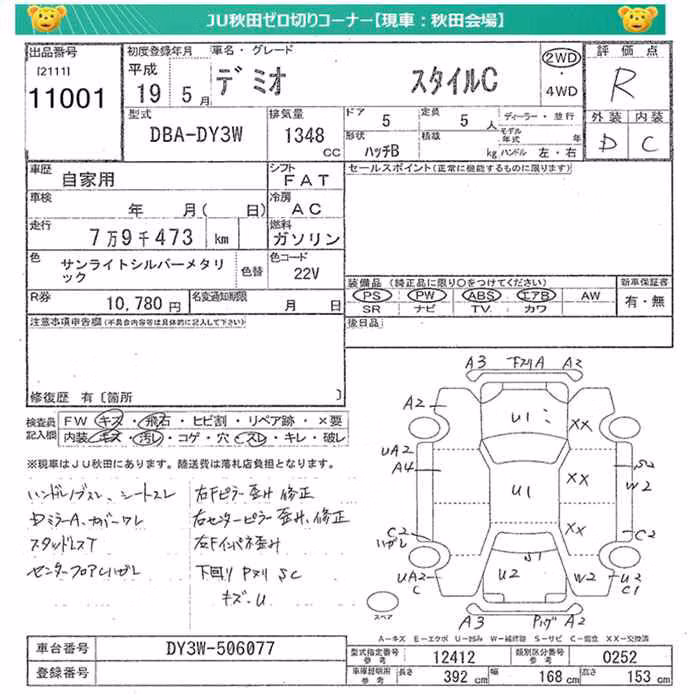 JU秋田ゼロ切りコーナー【現車：秋田会場】
出品番号
[2111]
11001
初度登録年月
平成
19 5月
車名・グレード
デミオ スタイルC
2WD
・
4WD
評価点
R
外装 内装
D C
型式
DBA-DY3W
排気量
1348
CC
ドア
5
定員
5 人
ディーラー・並行
形状
ハッチB
積載
kg
モデル
年式 年
ハンドル 左・右
車歴
自家用
シフト
FAT
セールスポイント(正常に機能するものに限ります)
車検
年 月( 日)
冷房
AC
走行
7万9千473 km
燃料
ガソリン
色
サンライトシルバーメタリ
ック
色替
色コード
22V
R券
10,780 円
名変通知期限
月 日
装備品(純正品に限り○をつけてください)
PS PW ABS エアB AW
SR ナビ TV カワ
新車保証書
有・無
注意事項申告欄(不具合内容等は具体的に記入して下さい)
後日品
修復歴 有〔箇所 〕
検査員
記入欄
FW キズ・飛石・ヒビ割・リペア跡・×要
内装 キズ・汚レ・コゲ・穴・スレ・キレ・破レ
※現車はJU秋田にあります。陸送費は落札店負担となります。
ハンドルノブスレ、シートスレ
DミラーA、カバーワレ
スタッドレスT
センターフロアCハガレ
右Fピラー歪み修正
右センターピラー歪み、修正
右Fインパネ歪み
下回り Pヌリ SC
キズ・U
A3 下ヌリA A2
A2
U1
XX
UA2
A4
S2
W2
U1
XX
XX
C2
ハガレ
C2
S1
UA2
C
U2
W2
U2
C1
スペア
A3 A2
A-キズ E-エクボ U-凹み W-補修跡 S-サビ C-腐蝕 XX-交換済
車台番号
DY3W-506077
登録番号
型式指定番号
参考
12412
類別区分番号
参考
0252
車庫証明用
参考
長さ
392 cm
幅
168 cm
高さ
153 cm